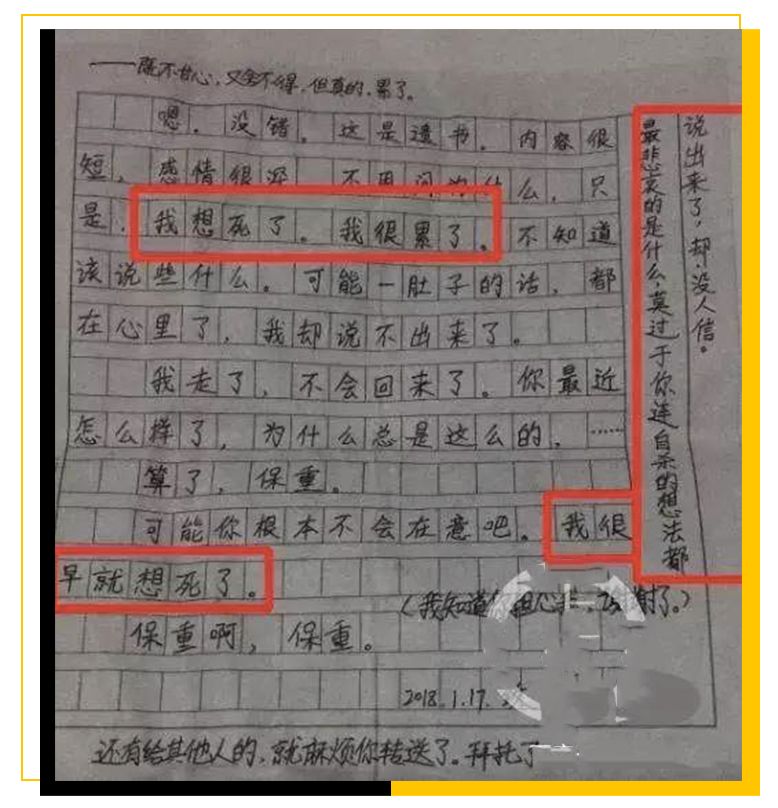 ——既不甘心，又舍不得，但真的，累了。
嗯。没错。这是遗书。内容很
短，感情很深。不用问为什么，只
是，我想死了。我很累了。不知道
该说些什么。可能一肚子的话，都
在心里了，我却说不出来了。
我走了，不会回来了。你最近
怎么样了，为什么总是这么的，……
算了，保重。
可能你根本不会在意吧。我很
早就想死了。
（我知道你担心我，谢谢了。）
保重啊，保重。
2018.1.17.
还有给其他人的，就麻烦你转送了。拜托了
最悲哀的是什么，莫过于你连自杀的想法都
说出来了，却没人信。